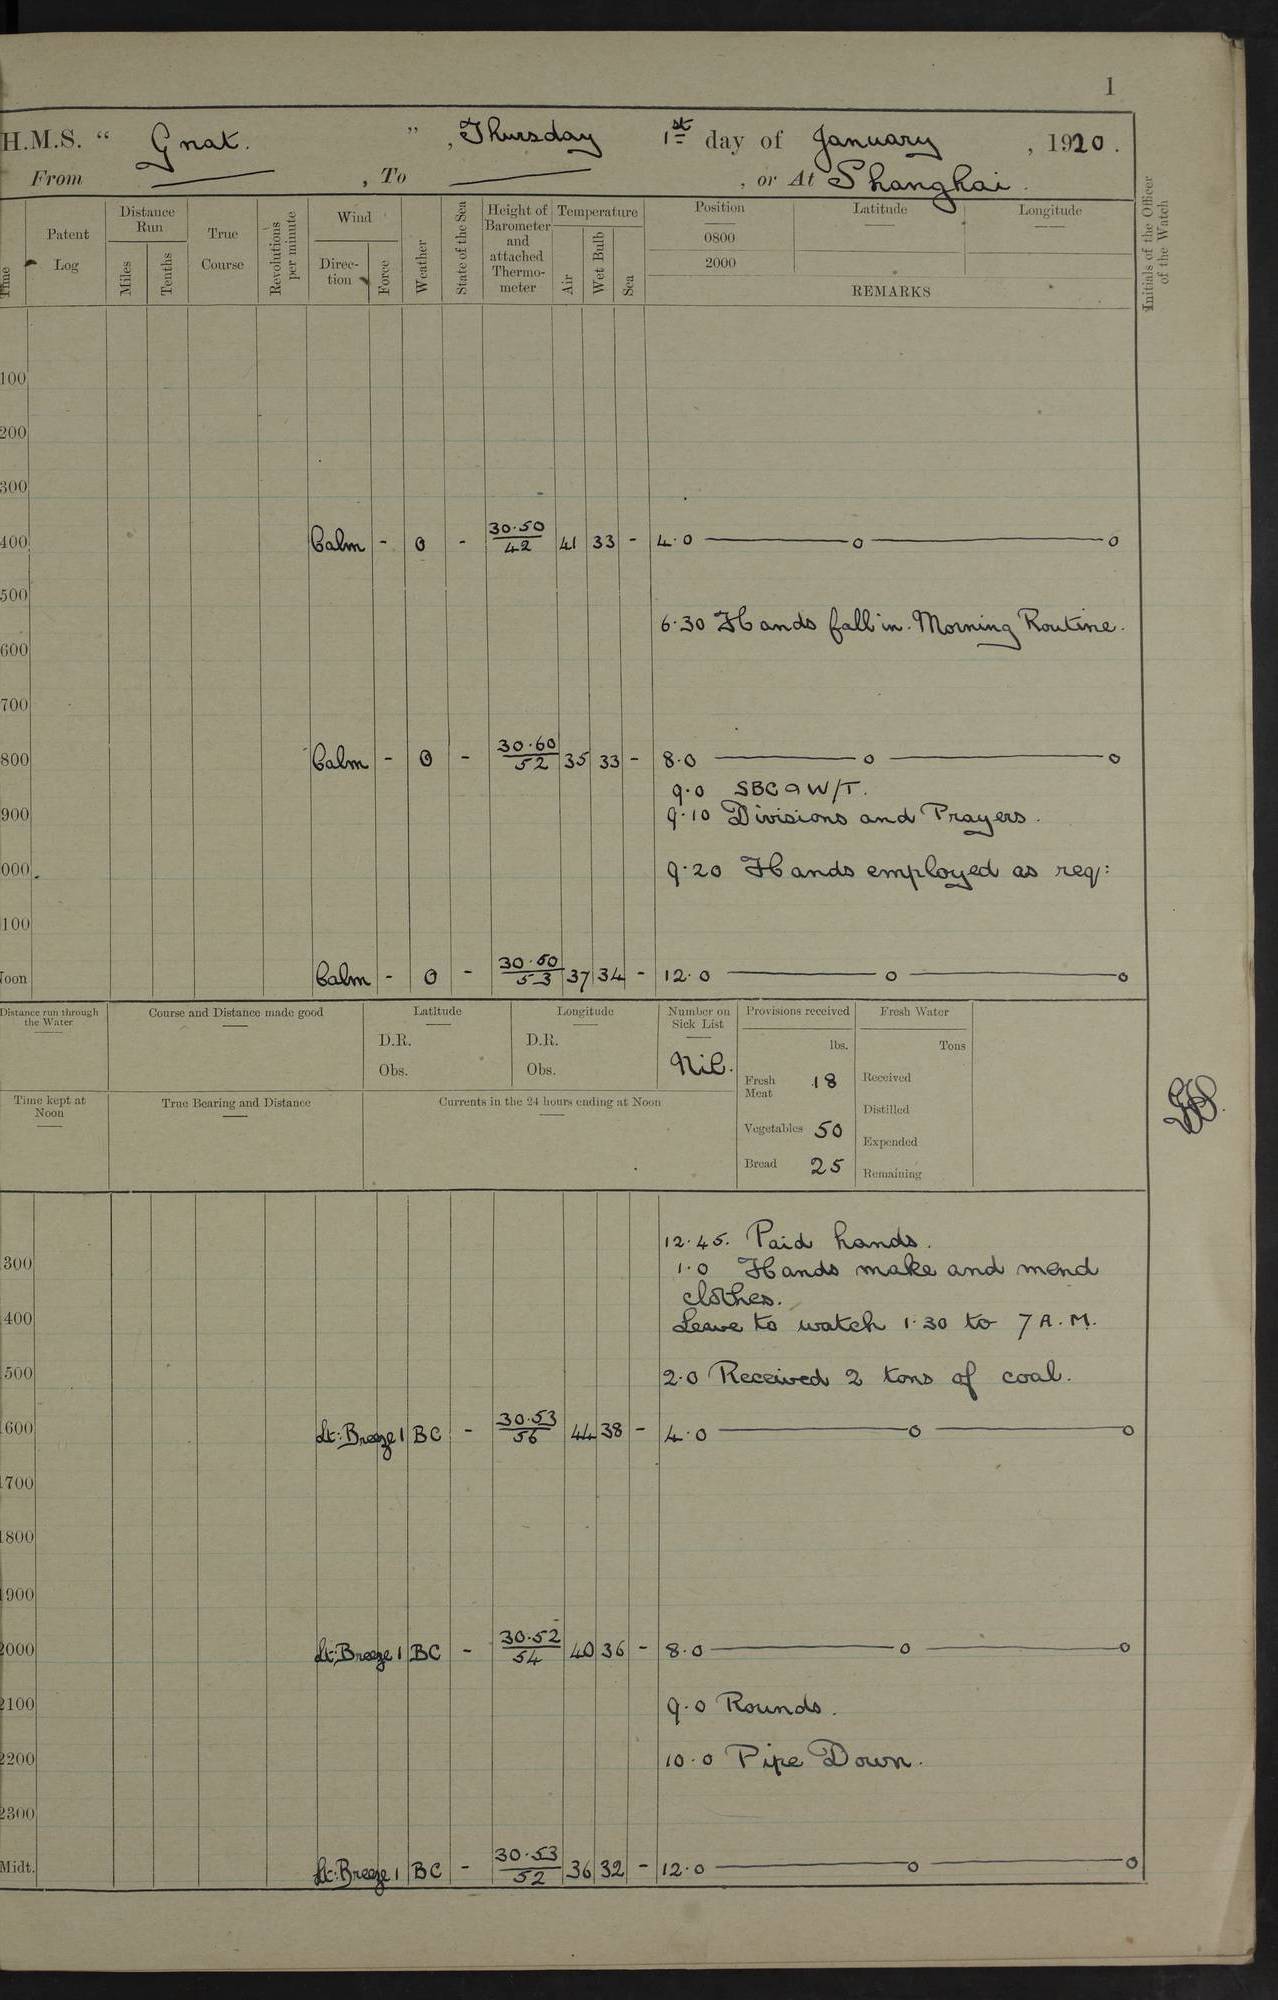 1
H.M.S. “ Gnat. ” , Thursday 1st day of January , 1920 .
From , To , or At Shanghai .
Time
Patent Log
Distance Run
Miles
Tenths
True Course
Revolutions per minute
Wind
Direction
Force
Weather
State of the Sea
Height of Barometer and attached Thermometer
Temperature
Air
Wet Bulb
Sea
Position Latitude Longitude
0800
2000
REMARKS
Initials of the Officer of the Watch
100
200
300
400 Calm - O - 30.50/42 41 33 - 4.0 — o — o
500
6.30 Hands fall in. Morning Routine.
600
700
800 Calm - O - 30.60/52 35 33 - 8.0 — o — o
9.0 SBC 9 W/T.
900 9.10 Divisions and Prayers.
000 9.20 Hands employed as req:
100
Noon Calm - O - 30.60/53 37 34 - 12.0 — o — o
Distance run through the Water
Course and Distance made good
Latitude
D.R.
Obs.
Longitude
D.R.
Obs.
Number on Sick List
Nil.
Provisions received
lbs.
Fresh Meat 18
Vegetables 50
Bread 25
Fresh Water
Tons
Received
Distilled
Expended
Remaining
Time kept at Noon
True Bearing and Distance
Currents in the 24 hours ending at Noon
12.45. Paid hands.
300 1.0 Hands make and mend
clothes.
400 Leave to watch 1.30 to 7 A.M.
500 2.0 Received 2 tons of coal.
600 Lt: Breeze 1 BC - 30.53/56 44 38 - 4.0 — o — o
1700
1800
1900
2000 Lt: Breeze 1 BC - 30.52/54 40 36 - 8.0 — o — o
2100 9.0 Rounds.
2200 10.0 Pipe Down.
2300
Midt. Lt: Breeze 1 BC - 30.53/52 36 32 - 12.0 — o — o